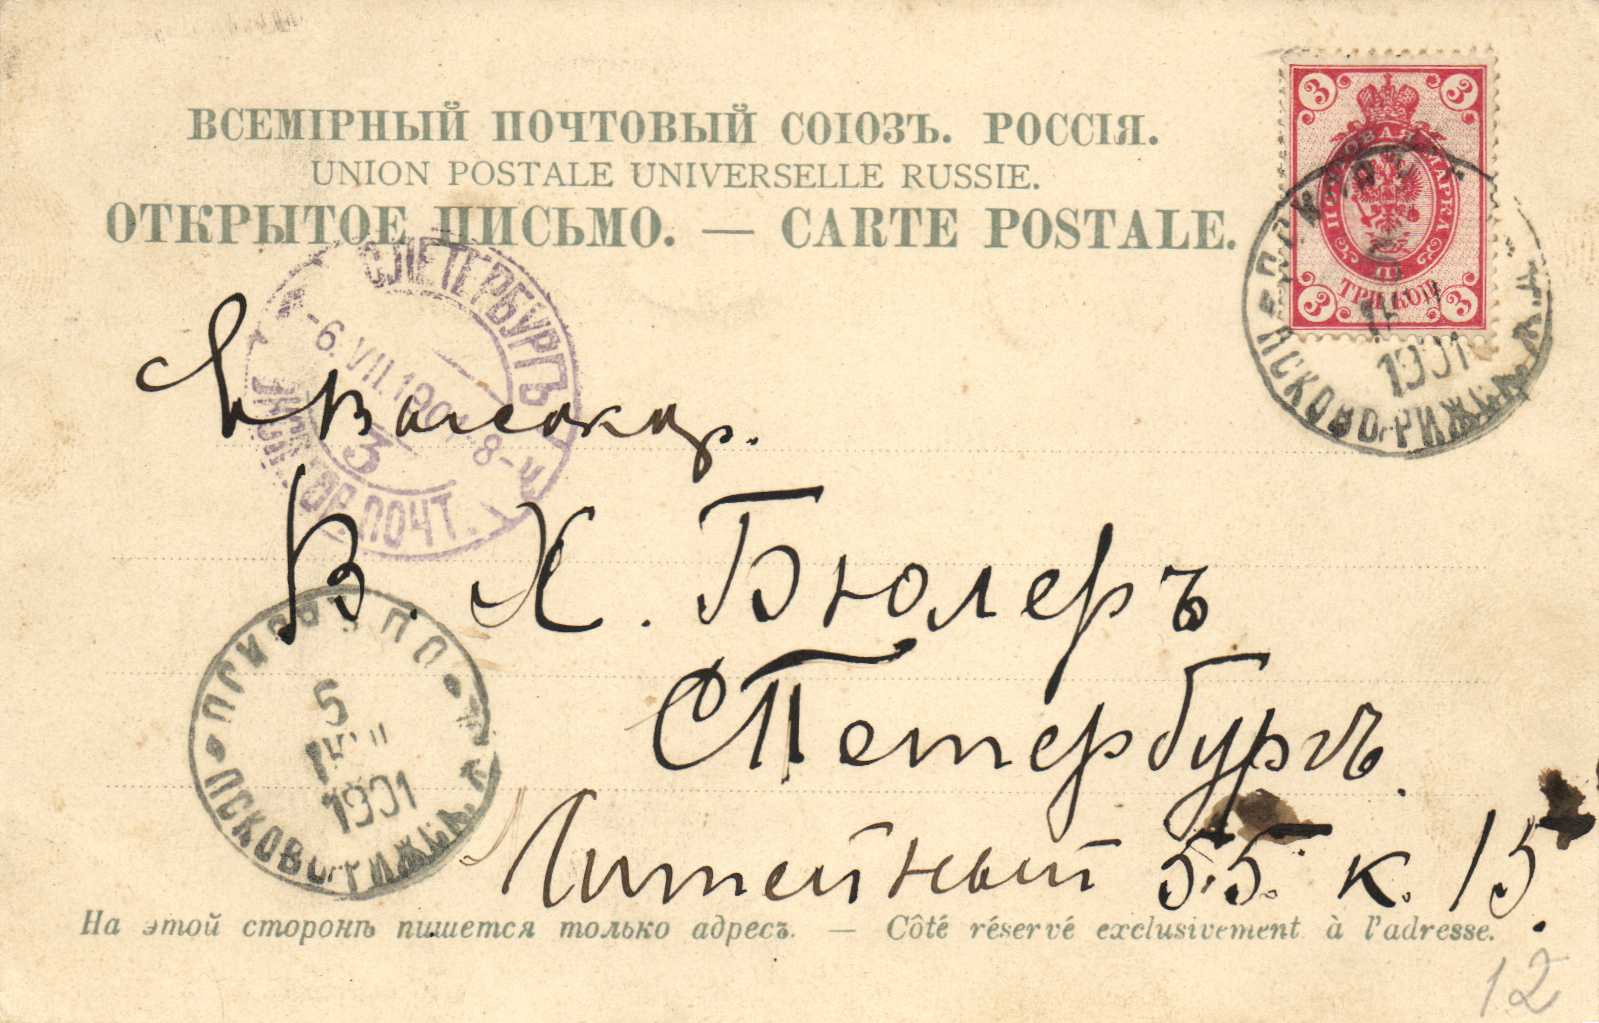 ВСЕМІРНЫЙ ПОЧТОВЫЙ СОЮЗЪ. РОССІЯ.
UNION POSTALE UNIVERSELLE RUSSIE.
ОТКРЫТОЕ ПИСЬМО. — CARTE POSTALE.
3 3
ПОЧТОВАЯ МАРКА
ТРИ КОП
3 3
1901
ПСКОВО-РИЖСК.
С.ПЕТЕРБУРГЪ
-6.VII.1901. 8-
3
ПОЧТ.
Е Высокор.
В. Х. Бюлеръ
СПетербургъ.
Литейный 55. к. 15.
5
1901
ПСКОВО-РИЖСК.
На этой сторонѣ пишется только адресъ. — Côté réservé exclusivement à l'adresse.
12